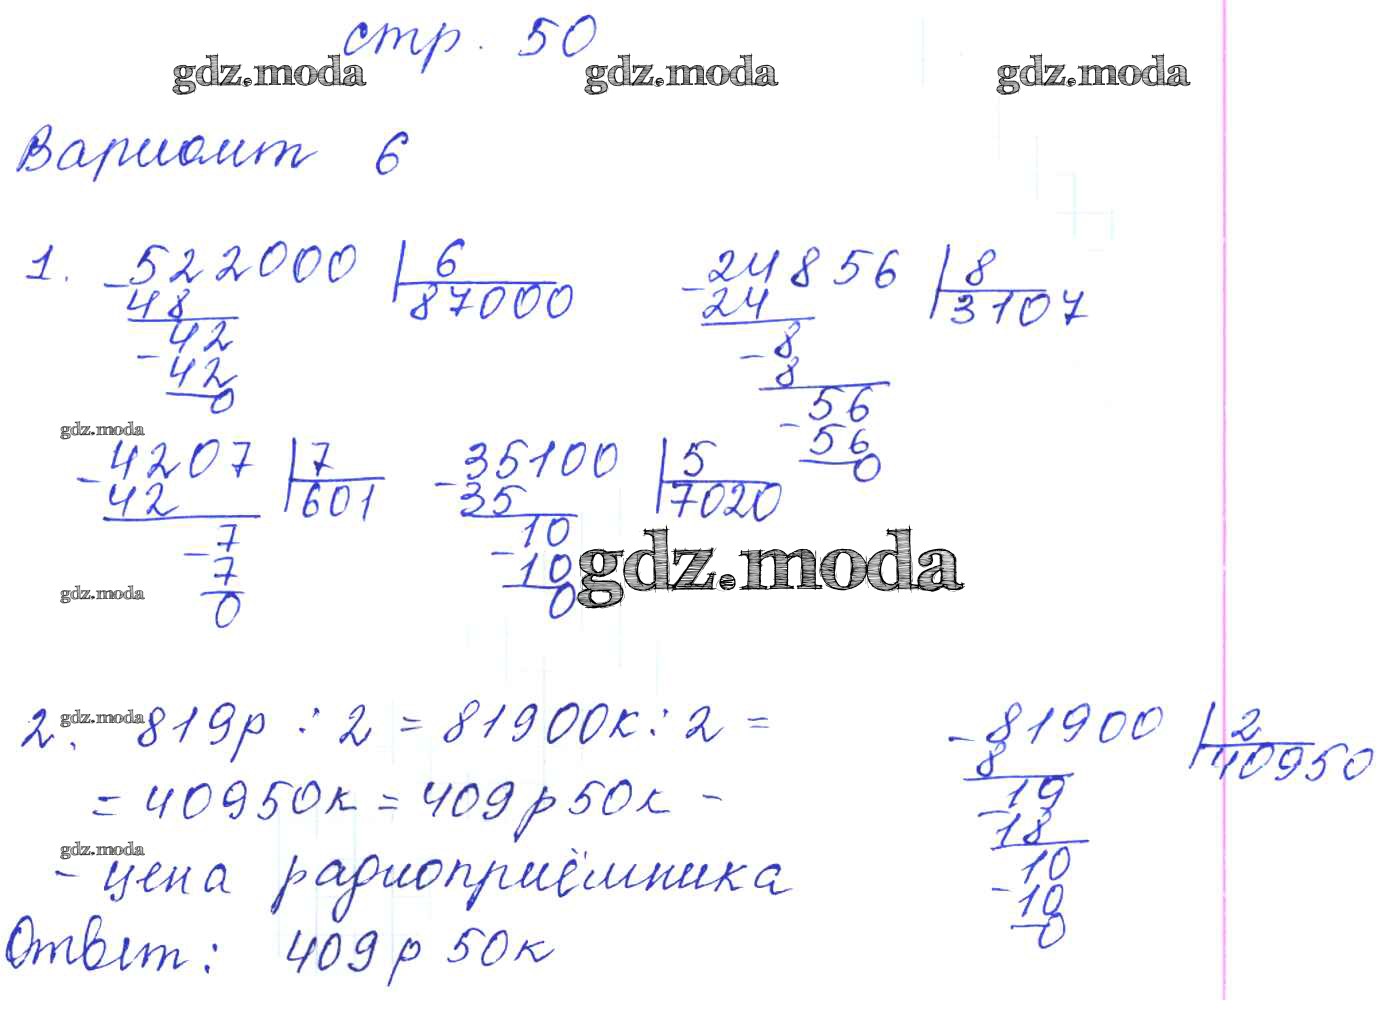 стр. 50
gdz.moda gdz.moda gdz.moda
Вариант 6
1. - 522000 | 6 - 24856 | 8
48 87000 24 3107
- 42 - 8
42 8
0 - 56
56
0
gdz.moda
- 4207 | 7 - 35100 | 5
42 601 35 7020
- 7 - 10
7 10
0 0
gdz.moda
gdz.moda
2. 819р : 2 = 81900к : 2 = - 81900 | 2
gdz.moda
8 40950
= 40950к = 409р 50к -
- 19
18
gdz.moda
- цена радиоприёмника
- 10
10
0
Ответ: 409р 50к